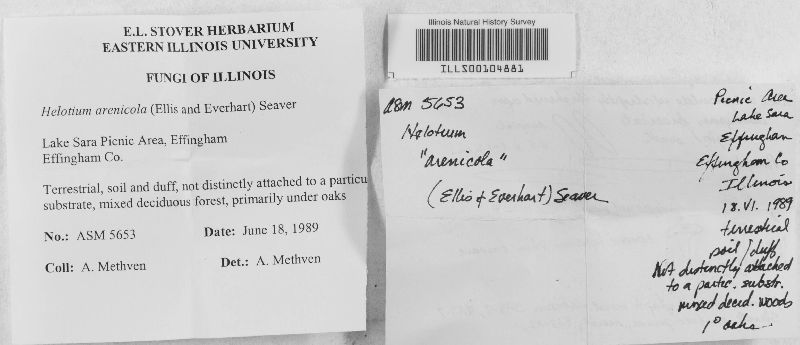 E.L. STOVER HERBARIUM
EASTERN ILLINOIS UNIVERSITY
FUNGI OF ILLINOIS
Helotium arenicola (Ellis and Everhart) Seaver
Lake Sara Picnic Area, Effingham
Effingham Co.
Terrestrial, soil and duff, not distinctly attached to a particu
substrate, mixed deciduous forest, primarily under oaks
No.: ASM 5653 Date: June 18, 1989
Coll: A. Methven Det.: A. Methven
Illinois Natural History Survey
ILLS00104881
ASM 5653
Helotium
"arenicola"
(Ellis & Everhart) Seaver
Picnic Area
Lake Sara
Effingham
Effingham Co
Illinois
18.VI.1989
terrestrial
soil/duff
Not distinctly attached
to a partic. substr.
mixed decid. woods
1° oaks